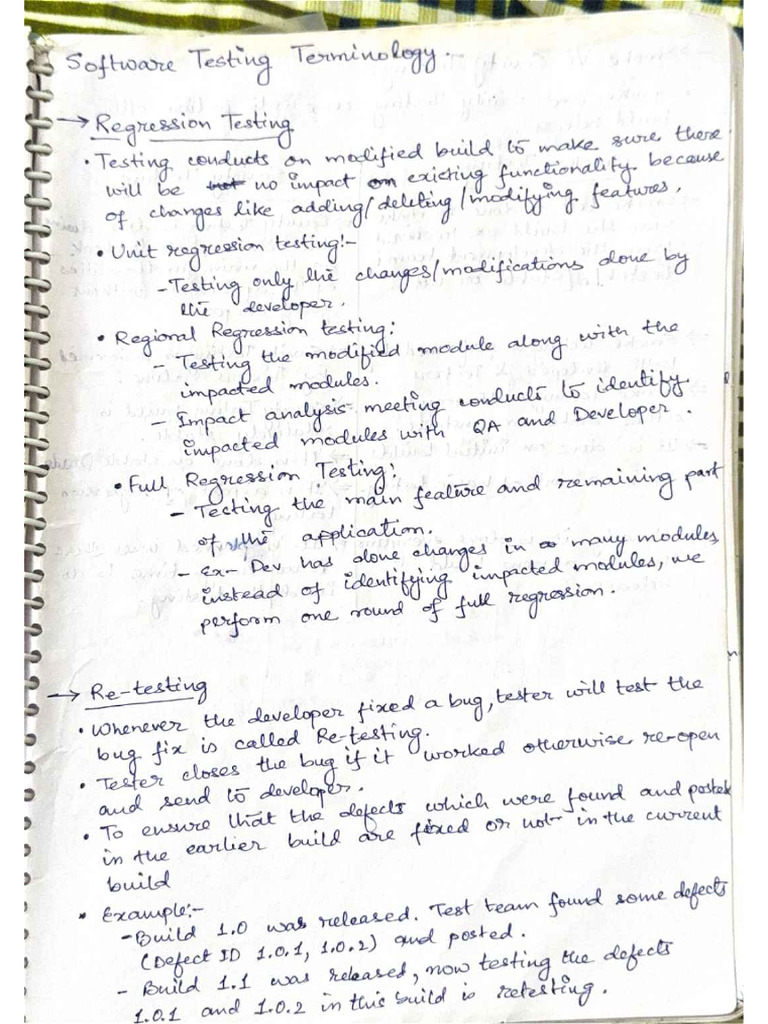 Software Testing Terminology.
→ Regression Testing
• Testing conducts on modified build to make sure there
will be not no impact on existing functionality because
of changes like adding/deleting/modifying features.
• Unit regression testing:-
- Testing only the changes/modifications done by
the developer.
• Regional Regression testing:
- Testing the modified module along with the
impacted modules.
- Impact analysis meeting conducts to identify
impacted modules with QA and Developer.
• Full Regression Testing:
- Testing the main feature and remaining part
of the application.
- Ex- Dev has done changes in many modules,
instead of identifying impacted modules, we
perform one round of full regression.
→ Re-testing
• Whenever the developer fixed a bug, tester will test the
bug fix is called Re-testing.
• Tester closes the bug if it worked otherwise re-open
and send to developer.
• To ensure that the defects which were found and posted
in the earlier build are fixed or not in the current
build
• Example:-
- Build 1.0 was released. Test team found some defects
(Defect ID 1.0.1, 1.0.2) and posted.
- Build 1.1 was released, now testing the defects
1.0.1 and 1.0.2 in this build is retesting.